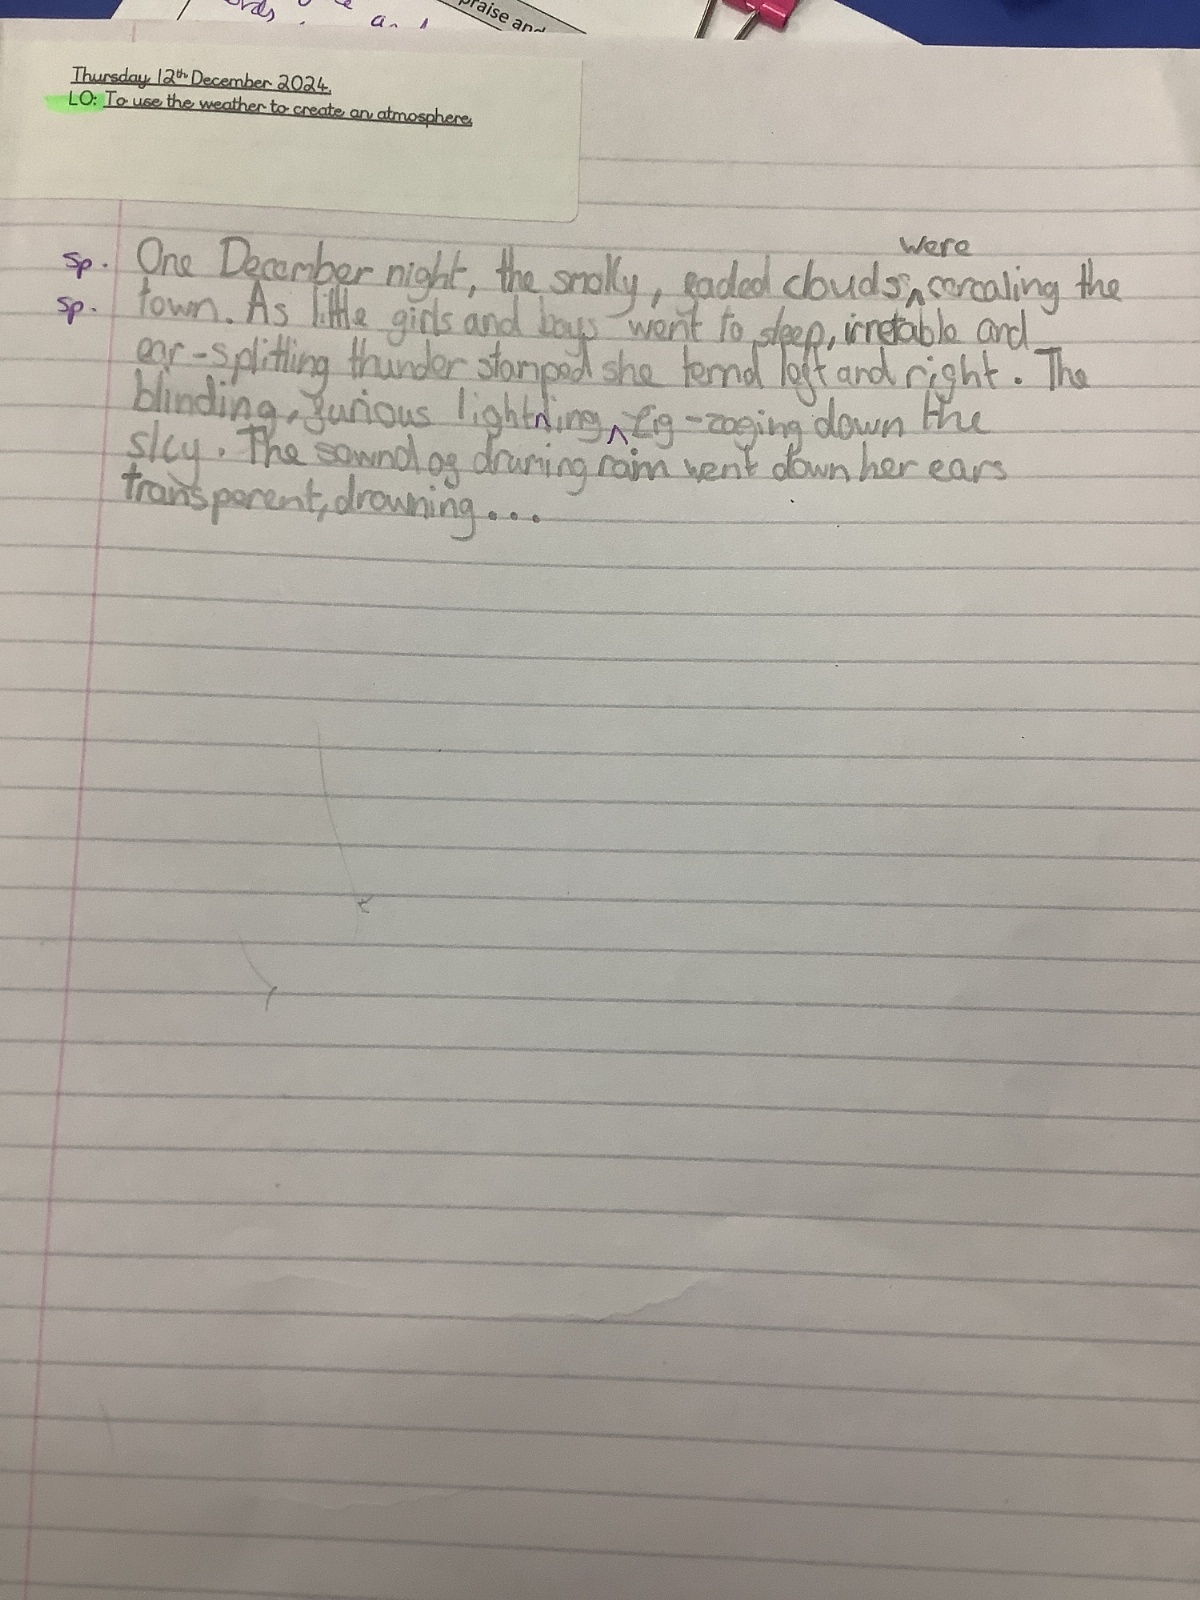 raise and
Thursday 12th December 2024.
LO: To use the weather to create an atmosphere.
were
sp. One December night, the smolly, faded clouds ^ cercealing the
sp. town. As little girls and boys went to sleep, irretable and
ear-splitting thunder stamped she ternd left and right. The
blinding, furious lightning ^ zig-zaging down the
sky. The sownd of druming rain went down her ears
transparent, drowning...